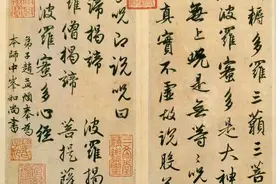 耨多羅三藐三菩
波羅蜜多是大神
無上呪是無等等呪
真實不虛故說般
呪即說呪曰
揭諦 波羅揭
羅僧揭諦 菩提薩
波羅蜜多心經
弟子趙孟頫奉為
本師中峯和尚書